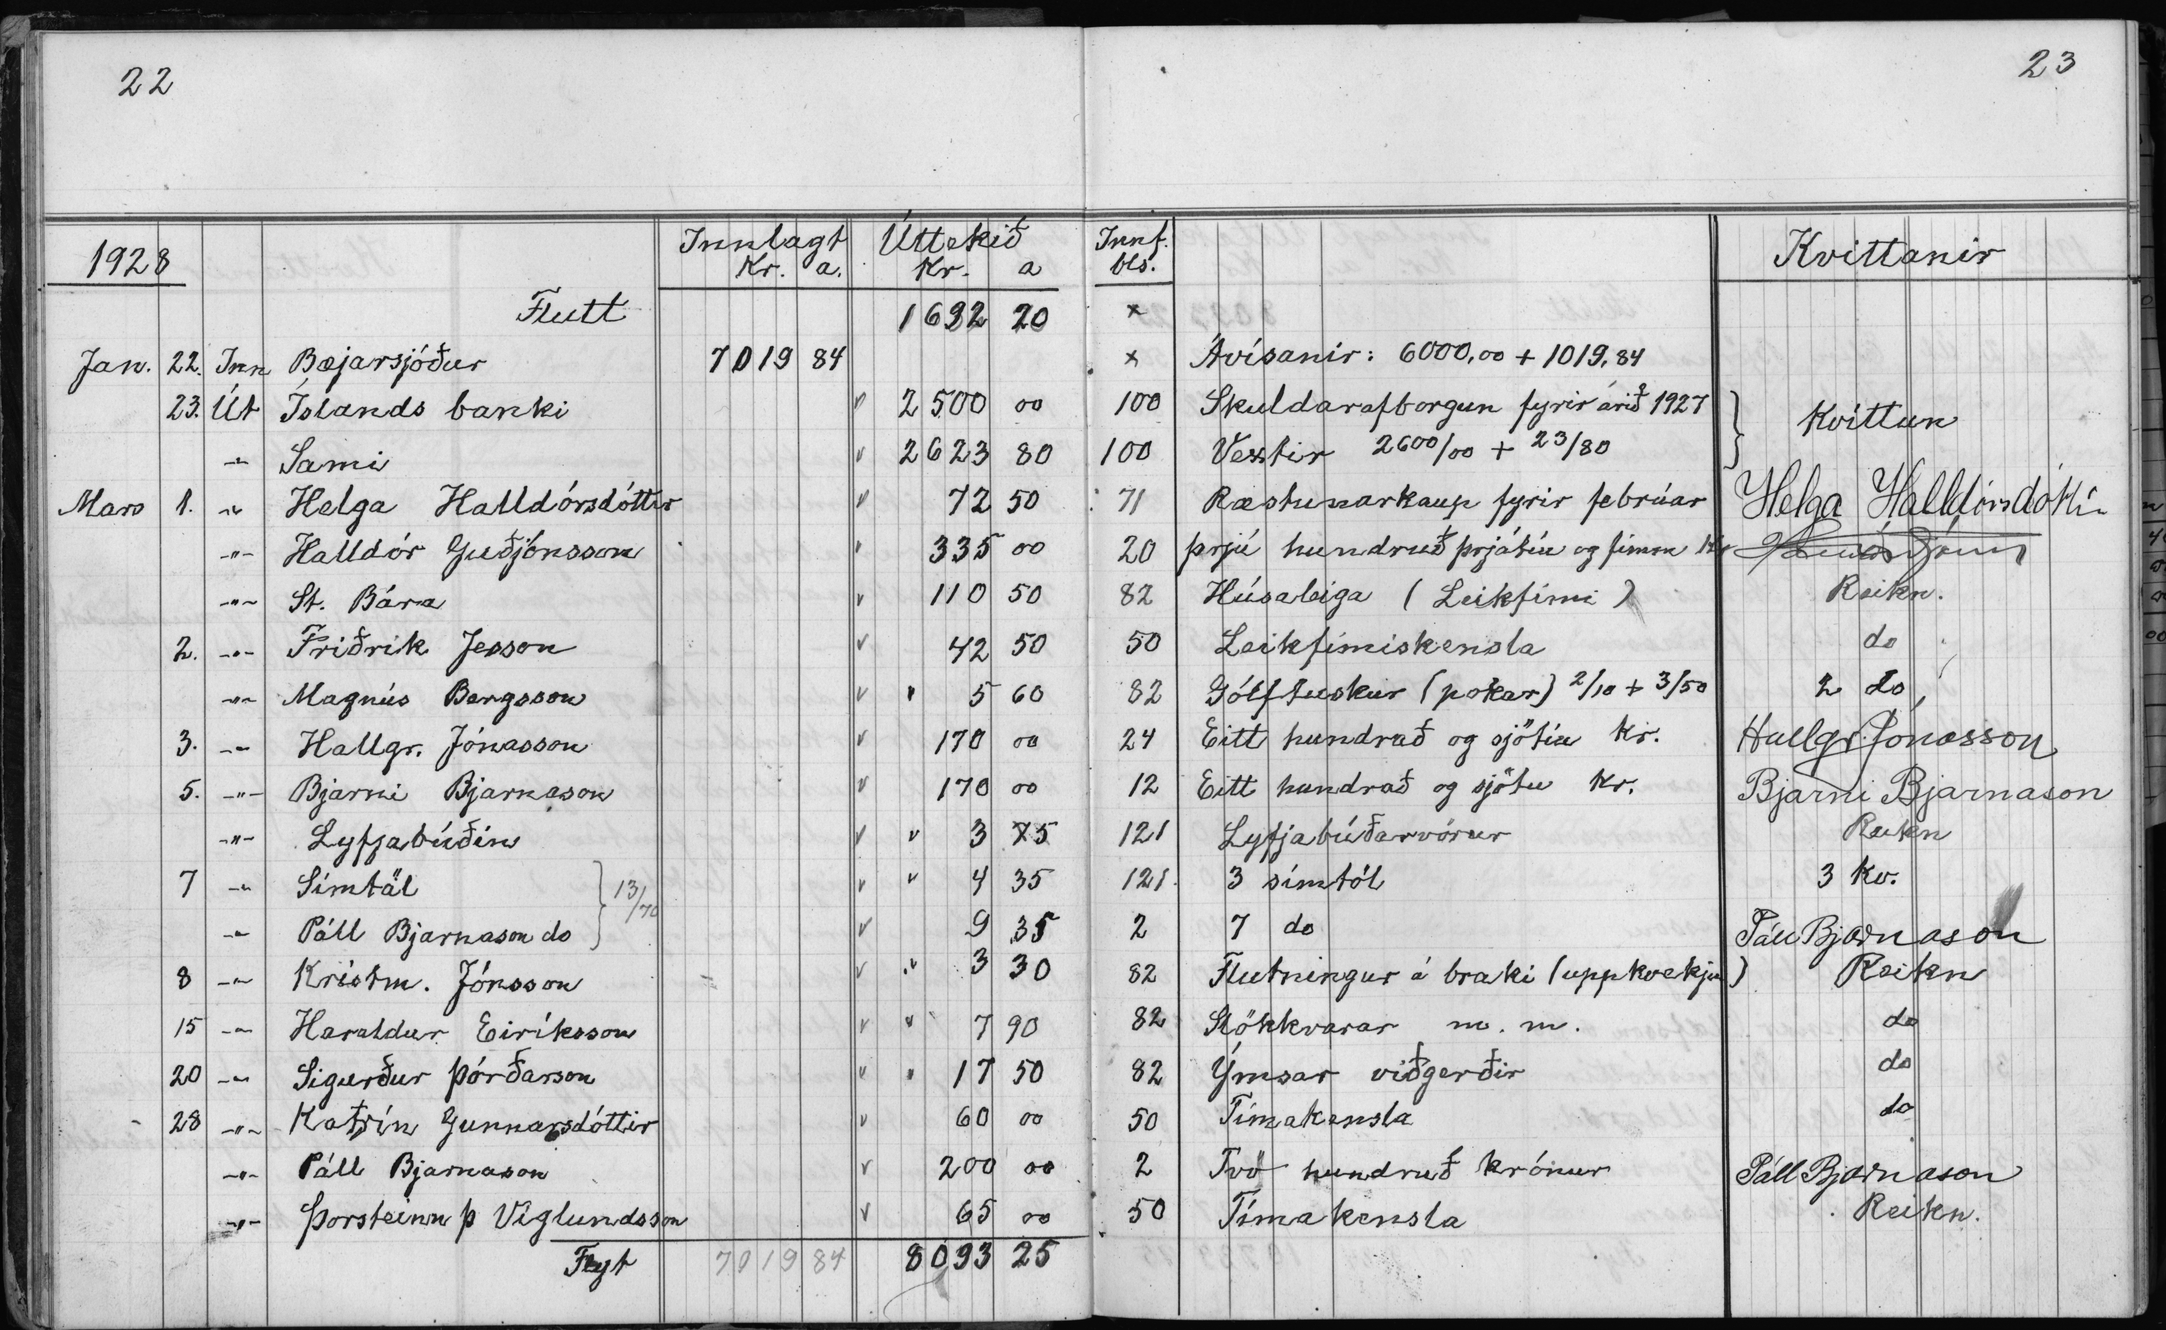 22
23
1928 Innlagt Úttekið Innf. Kvittanir
Kr. a. Kr. a bls.
Flutt 1692 20 x
Jan. 22. Inn Bæjarsjóður 7019 84 x Ávísanir: 6000,00 + 1019,84
23. Út Íslands banki v 2500 00 100 Skuldarafborgun fyrir árið 1927 } Kvittun
-"- Sami v 2623 80 100 Vextir 2600/00 + 23/80
Mars 1. -"- Helga Halldórsdóttir v 72 50 71 Ræstunarkaup fyrir febrúar Helga Halldórsdóttir
-"- Halldór Guðjónsson v 335 00 20 þrjú hundruð þrjátíu og fimm kr
-"- St. Bára v 110 50 82 Húsaleiga (Leikfimi) Reikn.
2. -"- Friðrik Jesson v 42 50 50 Leikfimiskensla do
-"- Magnús Bergsson v " 5 60 82 Gólftuskur (pokar) 2/10 + 3/50 2 do
3. -"- Hallgr. Jónasson v 170 00 24 Eitt hundrað og sjötíu kr. Hallgr. Jónasson
5. -"- Bjarni Bjarnason v 170 00 12 Eitt hundrað og sjötíu kr. Bjarni Bjarnason
-"- Lyfjabúðin v " 3 75 121 Lyfjabúðarvörur Reikn
7 -"- Símtöl } 13/70 v " 4 35 121 3 símtöl 3 kv.
-"- Páll Bjarnason do v 9 35 2 7 do Páll Bjarnason
8 -"- Kristm. Jónsson v " 3 30 82 Flutningur á braki (uppkvekju) Reikn
15 -"- Haraldur Eiríksson v " 7 90 82 Slökkvarar m. m. do
20 -"- Sigurður Þórðarson v " 17 50 82 Ýmsar viðgerðir do
28 -"- Katrín Gunnarsdóttir v 60 00 50 Tímakensla do
-"- Páll Bjarnason v 200 00 2 Tvö hundruð krónur Páll Bjarnason
-"- Þorsteinn Þ Víglundsson v 65 00 50 Tímakensla Reikn.
Flyt 7019 84 8093 25